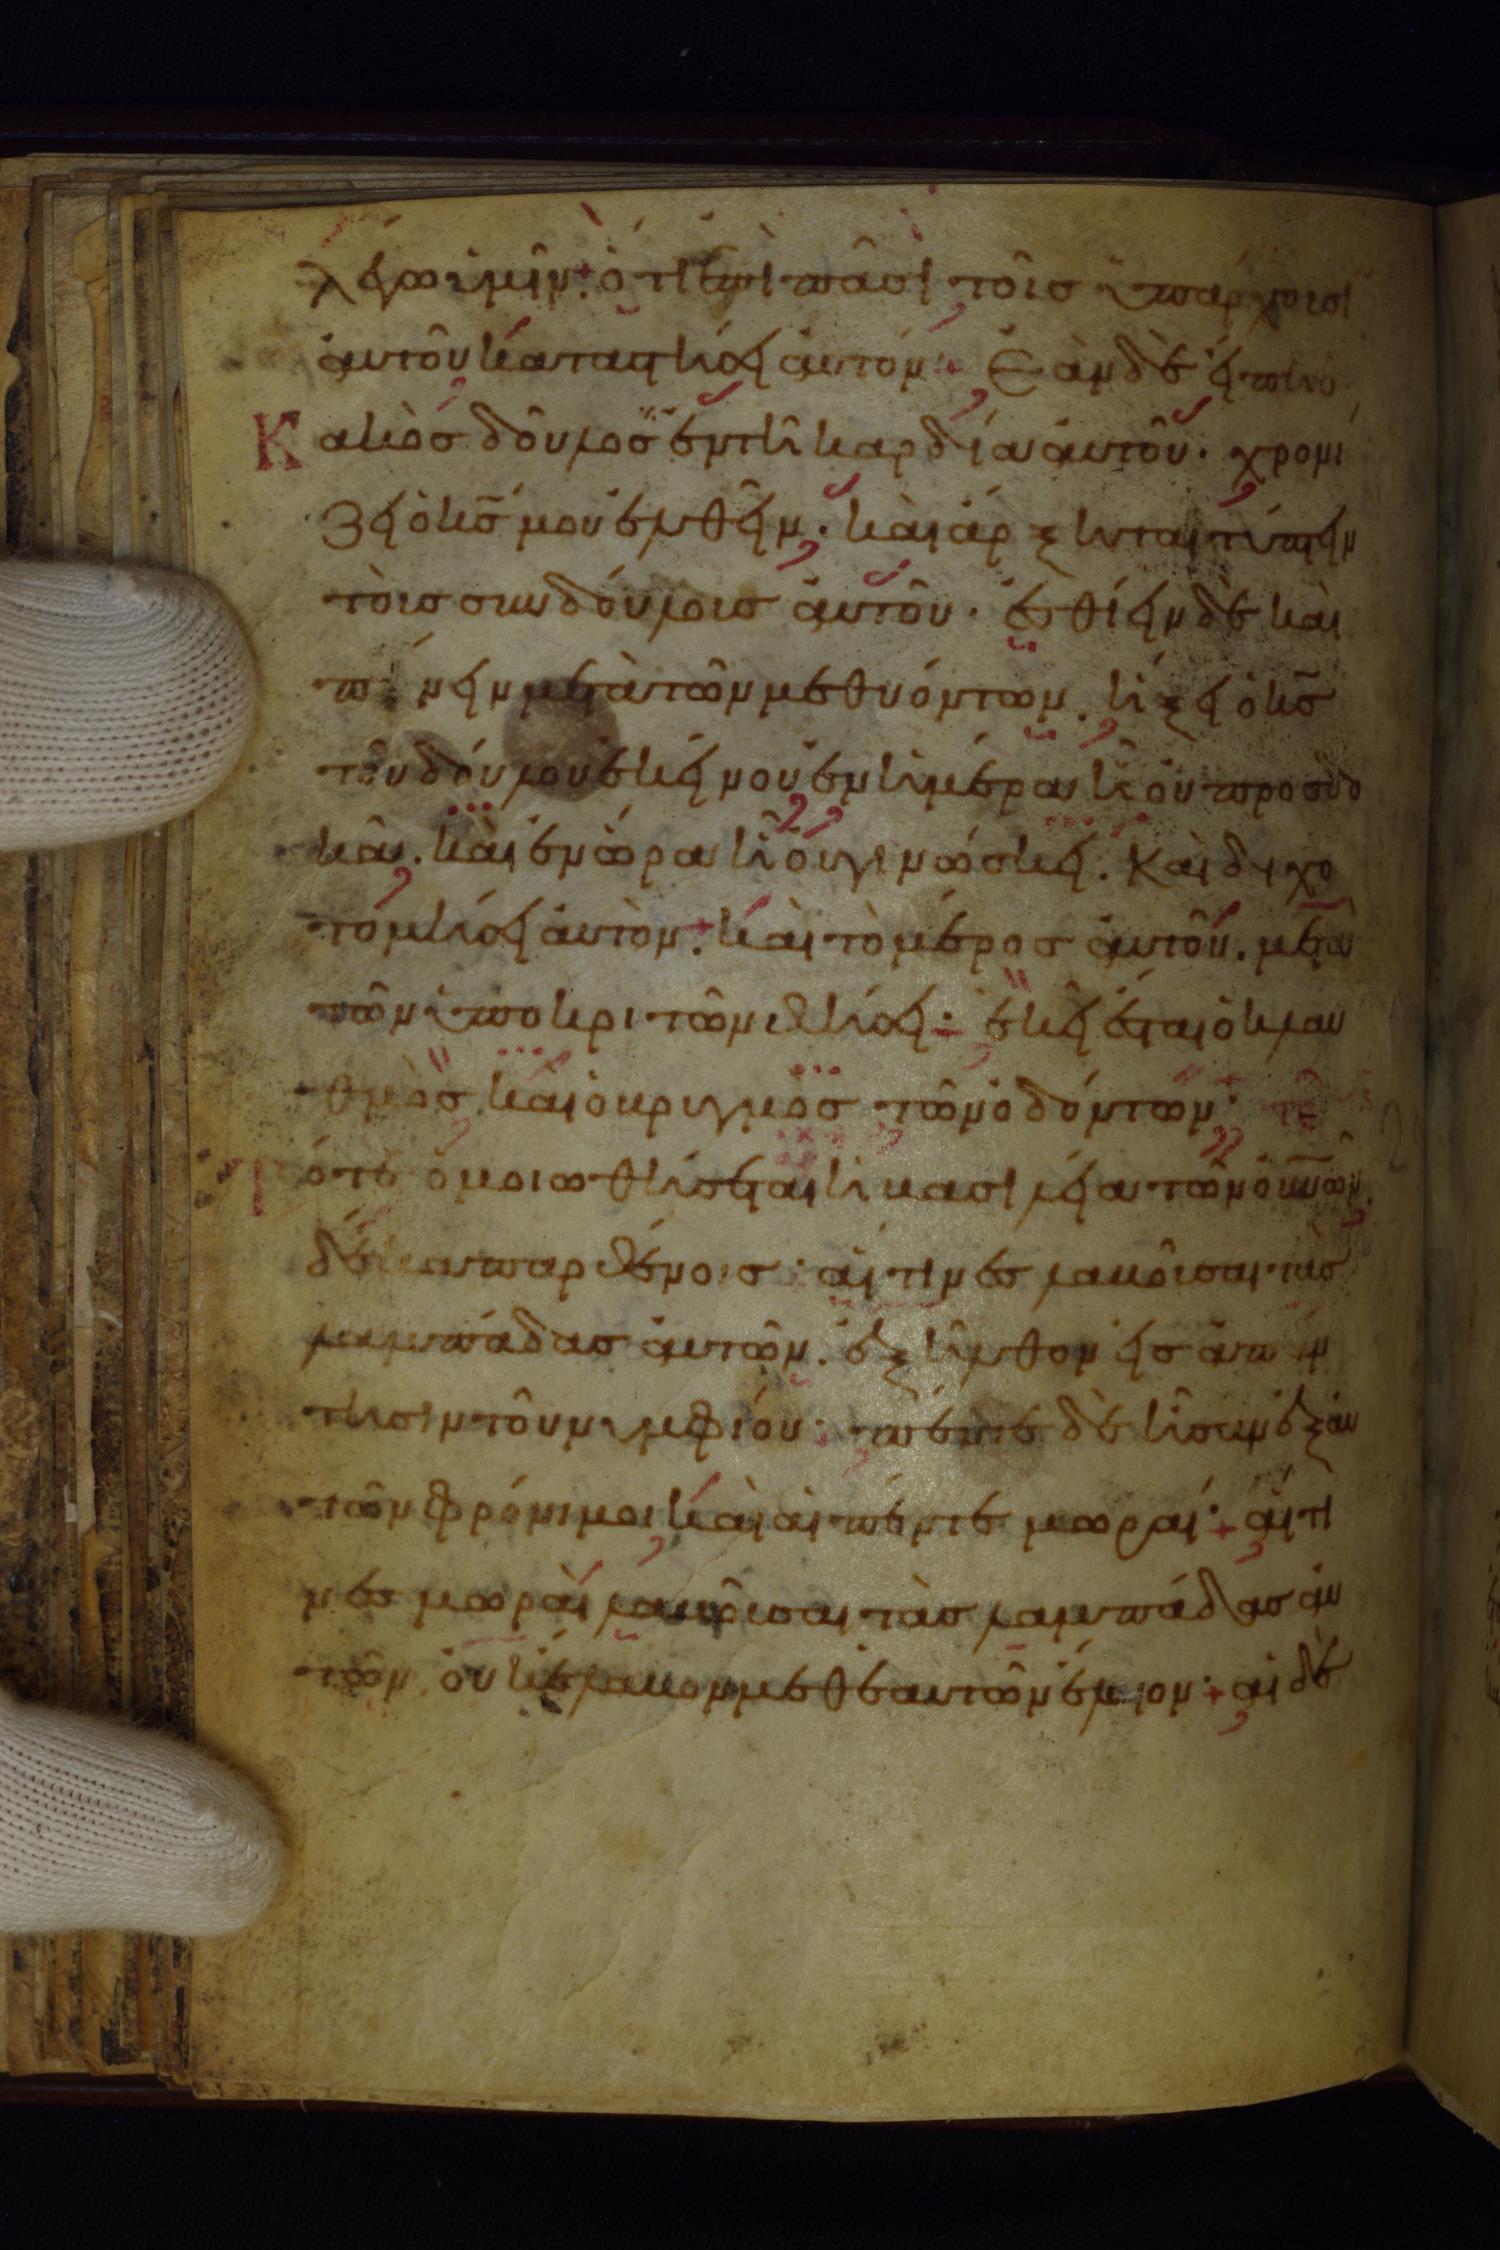 λέγω ὑμῖν· ὅτι ἐπὶ πᾶσι τοῖς ὑπάρχουσι
ἀυτοῦ καταστήσει ἀυτόν· Ἐὰν δὲ ἔιπη ὁ
Κακὸς δοῦλος ἐν τῆ καρδία ἀυτοῦ· χρονί
ζει ὁ κς̄ μου ἐλθεῖν· καὶ ἄρξηται τύπτειν
τοὶς συνδούλοις ἀυτοῦ· ἐσθίειν δὲ καὶ
πίνειν μετὰ τῶν μεθυόντων. ἥξει ὁ κς̄
τοῦ δούλου ἐκείνου ἐν ἡμέρα ἧ ὀυ προσδο
κᾶ. καὶ ἐν ὥρα ἧ ὀυ γινώσκει. Καὶ διχο
τομήσει ἀυτὸν· καὶ τὸ μέρος ἀυτοῦ. μετὰ
τῶν ὑποκριτῶν θήσει· ἐκεῖ ἔσται ὁ κλαυ
θμὸς καὶ ὁ βρυγμὸς τῶν ὀδόντων·
Τότε ὁμοιωθήσεται ἡ βασιλεία τῶν ὀυνῶν
δέκα παρθένοις· αἵτινες λαβοῦσαι τὰς
λαμπάδας ἀυτῶν. ἐξῆλθον εἰς ἀπάν
τησιν τοῦ νυμφίου· πέντε δὲ ἦσαν ἐξ ἀυ
τῶν φρόνιμοι καὶ αἱ πέντε μωραί· αἵτι
νες μωραὶ λαβοῦσαι τὰς λαμπάδας ἀυ
τῶν ὀυκ ἔλαβον μεθ ἑαυτῶν ἔλαιον· αἱ δὲ